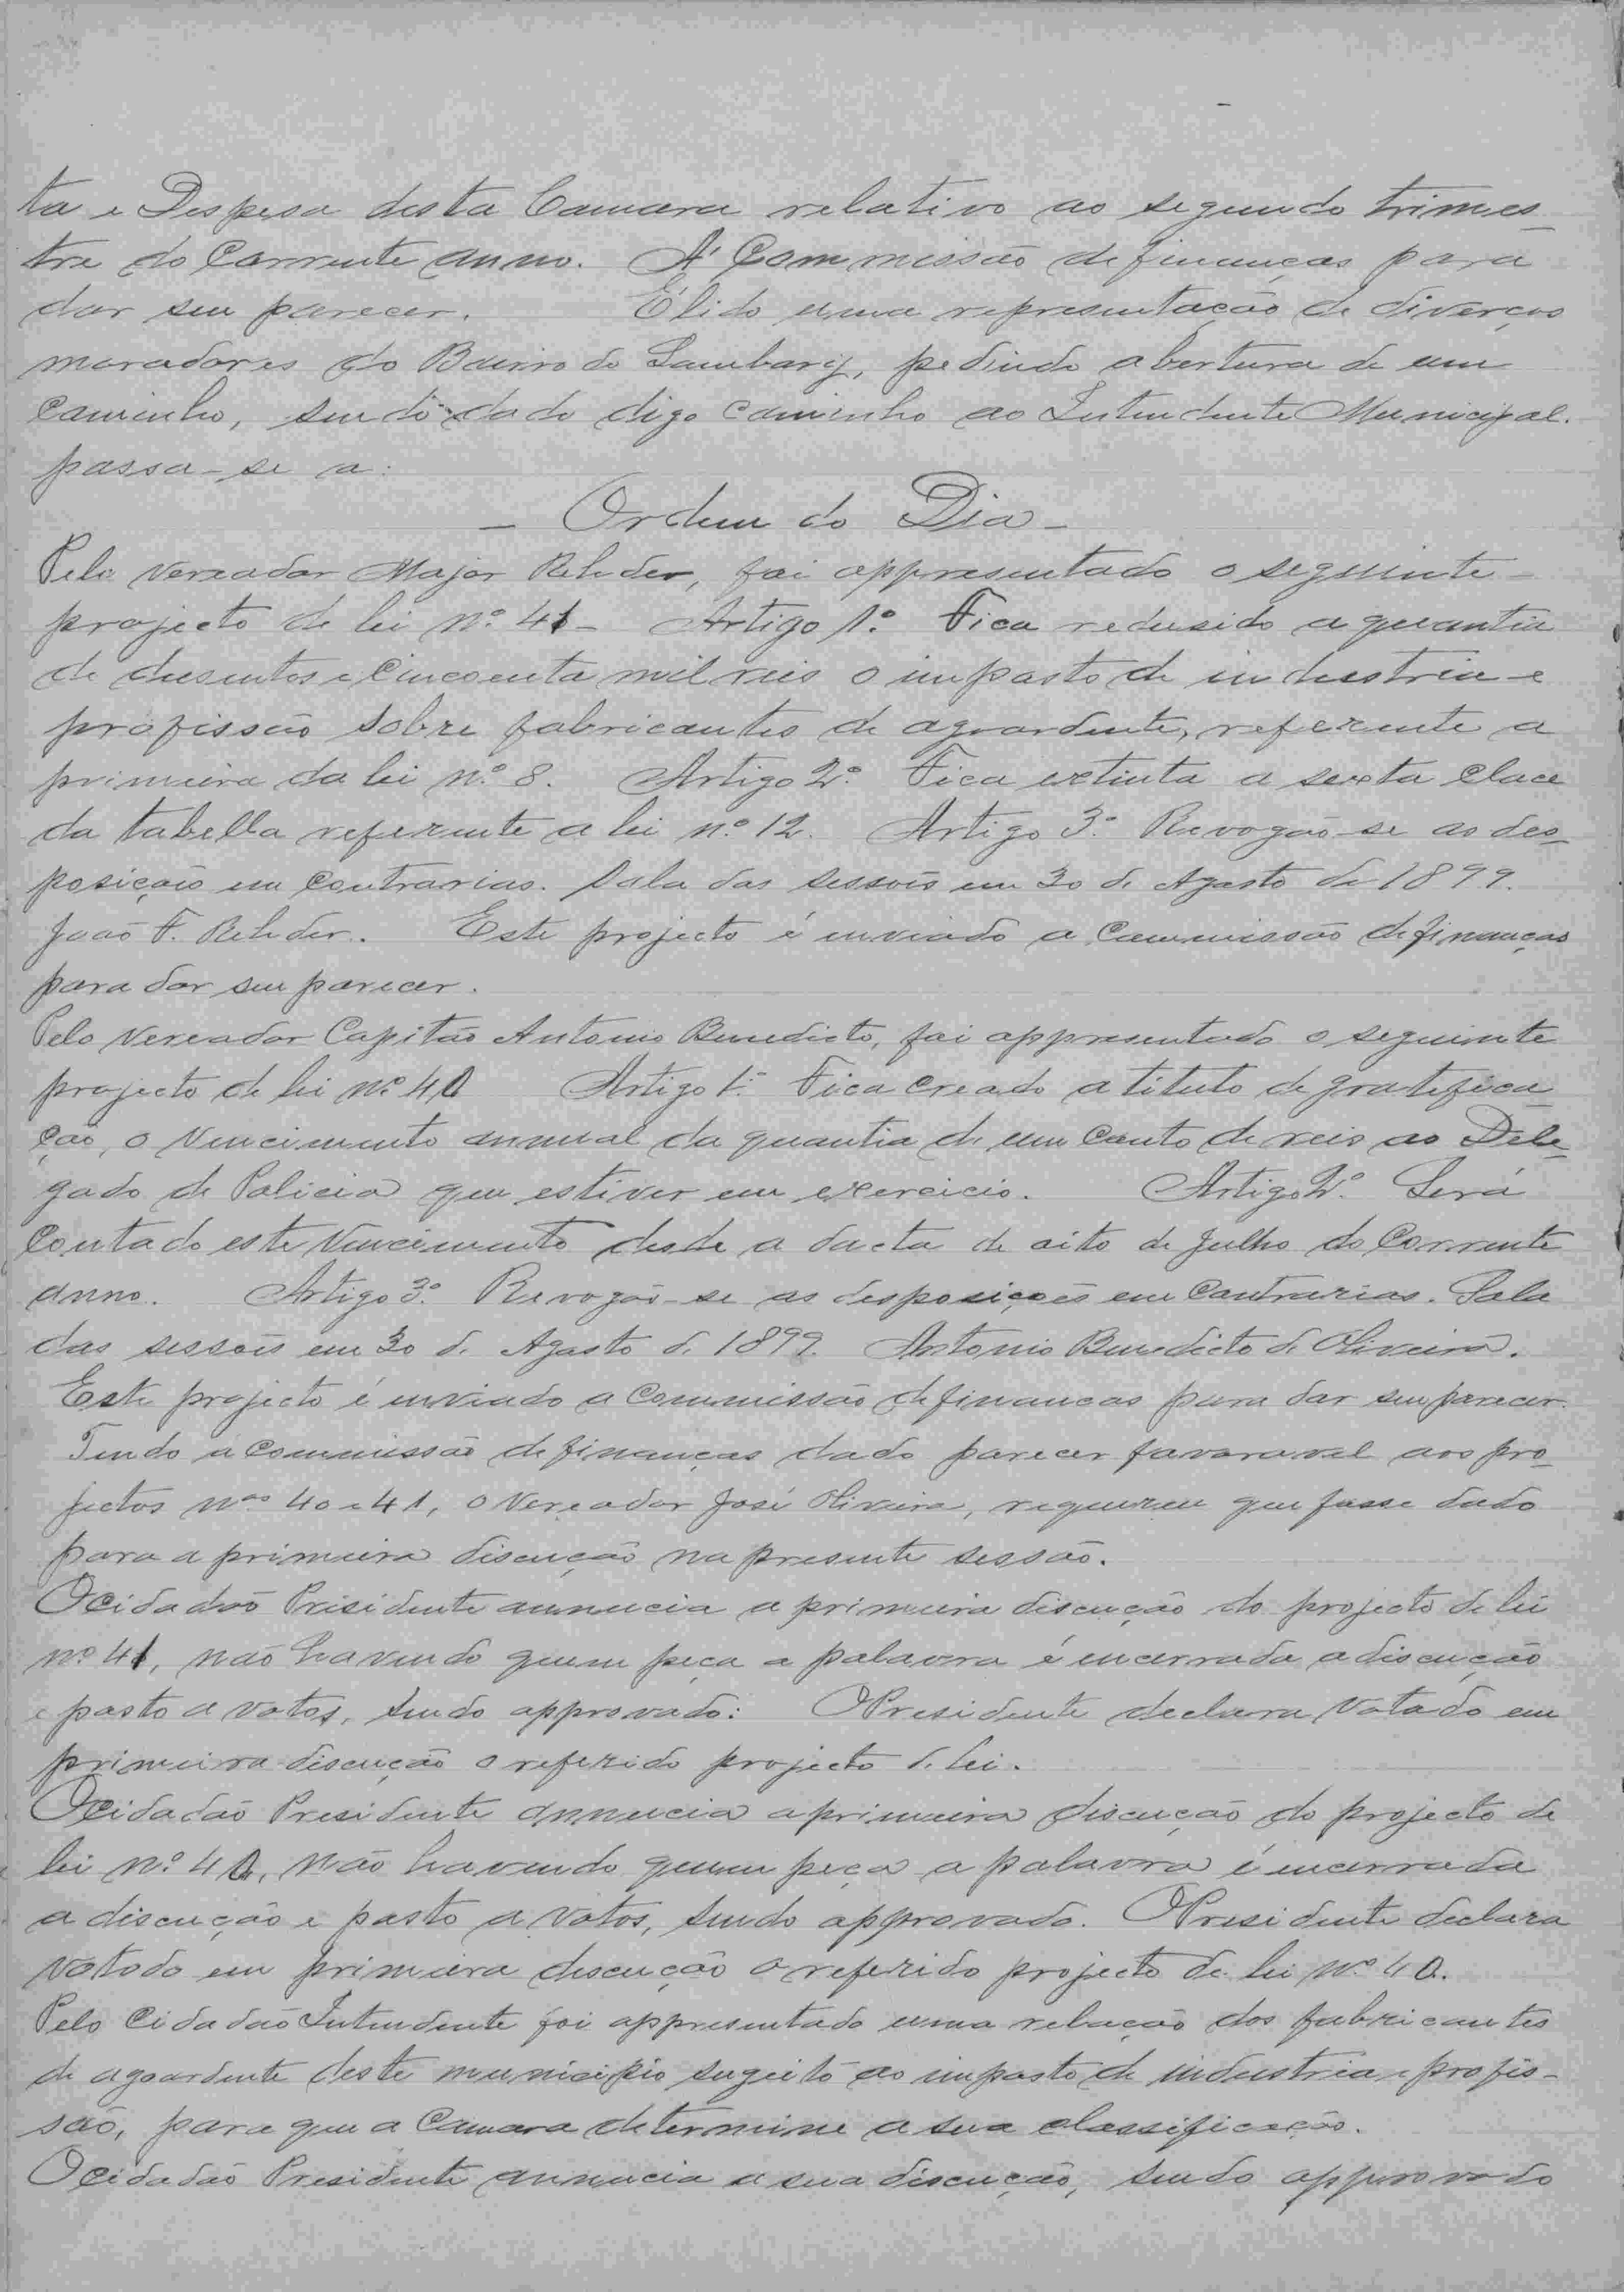 ta e Despesa desta Camara relativo ao segundo trimes
tre do Corrente anno. A' Commissão de finanças para
dar seu parecer. É lido uma representação de diverços
moradores do Bairro do Lambary, pedindo abertura de um
Caminho, sendo dado digo caminho ao Intendente Municipal.
passa-se a:
- Ordem do Dia -
Pelo Vereador Major Rehder, foi appresentado o seguinte -
projecto de lei nº 41 - Artigo 1º Fica redusido a quantia
de dusentos e Cincoenta mil reis o imposto de industria e
profissão sobre fabricantes de aguardente, referente a
primeira da lei nº 8. Artigo 2º Fica extinta a sexta Clace
da tabella referente a lei nº 12. Artigo 3º Revogão-se as des-
posiçois em Contrarias. Sala das sessois em 30 de Agosto de 1899.
João F. Rehder. Este projecto é enviado a Commissão de finanças
para dar seu parecer.
Pelo Vereador Capitão Antonio Benedicto, foi appresentado o seguinte
projecto de lei nº 40 Artigo 1º Fica Creado a titulo de gratifica
ção, o Vencimento annual da quantia de um Conto de reis ao Dele-
gado de Policia que estiver em exercicio. Artigo 2º Será
Contado este Vencimento desde a dacta de oito de Julho do Corrente
anno. Artigo 3º Revogão-se as desposiçoes em Contrarias. Sala
das sessois em 30 de Agosto de 1899. Antonio Benedicto de Oliveira.
Este projecto é enviado a Commissão de financas para dar seu parecer.
Tendo a Commissão de finanças dado parecer favoravel aos pro-
jectos nos 40 e 41, o Vereador José Oliveira, requereu que fosse dado
para a primeira discução na presente sessão.
O Cidadão Presidente annuncia a primeira discução do projecto de lei
nº 41, não havendo quem peça a palavra é encerrada a discução
e posto a votos, sendo approvado: O Presidente declara Votado em
primeira discução o referido projecto de lei.
O Cidadão Presidente annuncia a primeira discução do projecto de
lei nº 40, não havendo quem peça a palavra é encerrada
a discução e posto a votos, sendo approvado. O Presidente declara
Votado em primeira discução o referido projecto de lei nº 40.
Pelo Cidadão Intendente foi appresentado uma relação dos fabricantes
de agoardente deste municipio sugeito ao imposto de industria e profis-
são, para que a Camara determine a sua classificação.
O Cidadão Presidente annuncia a sua discução, sendo approvado